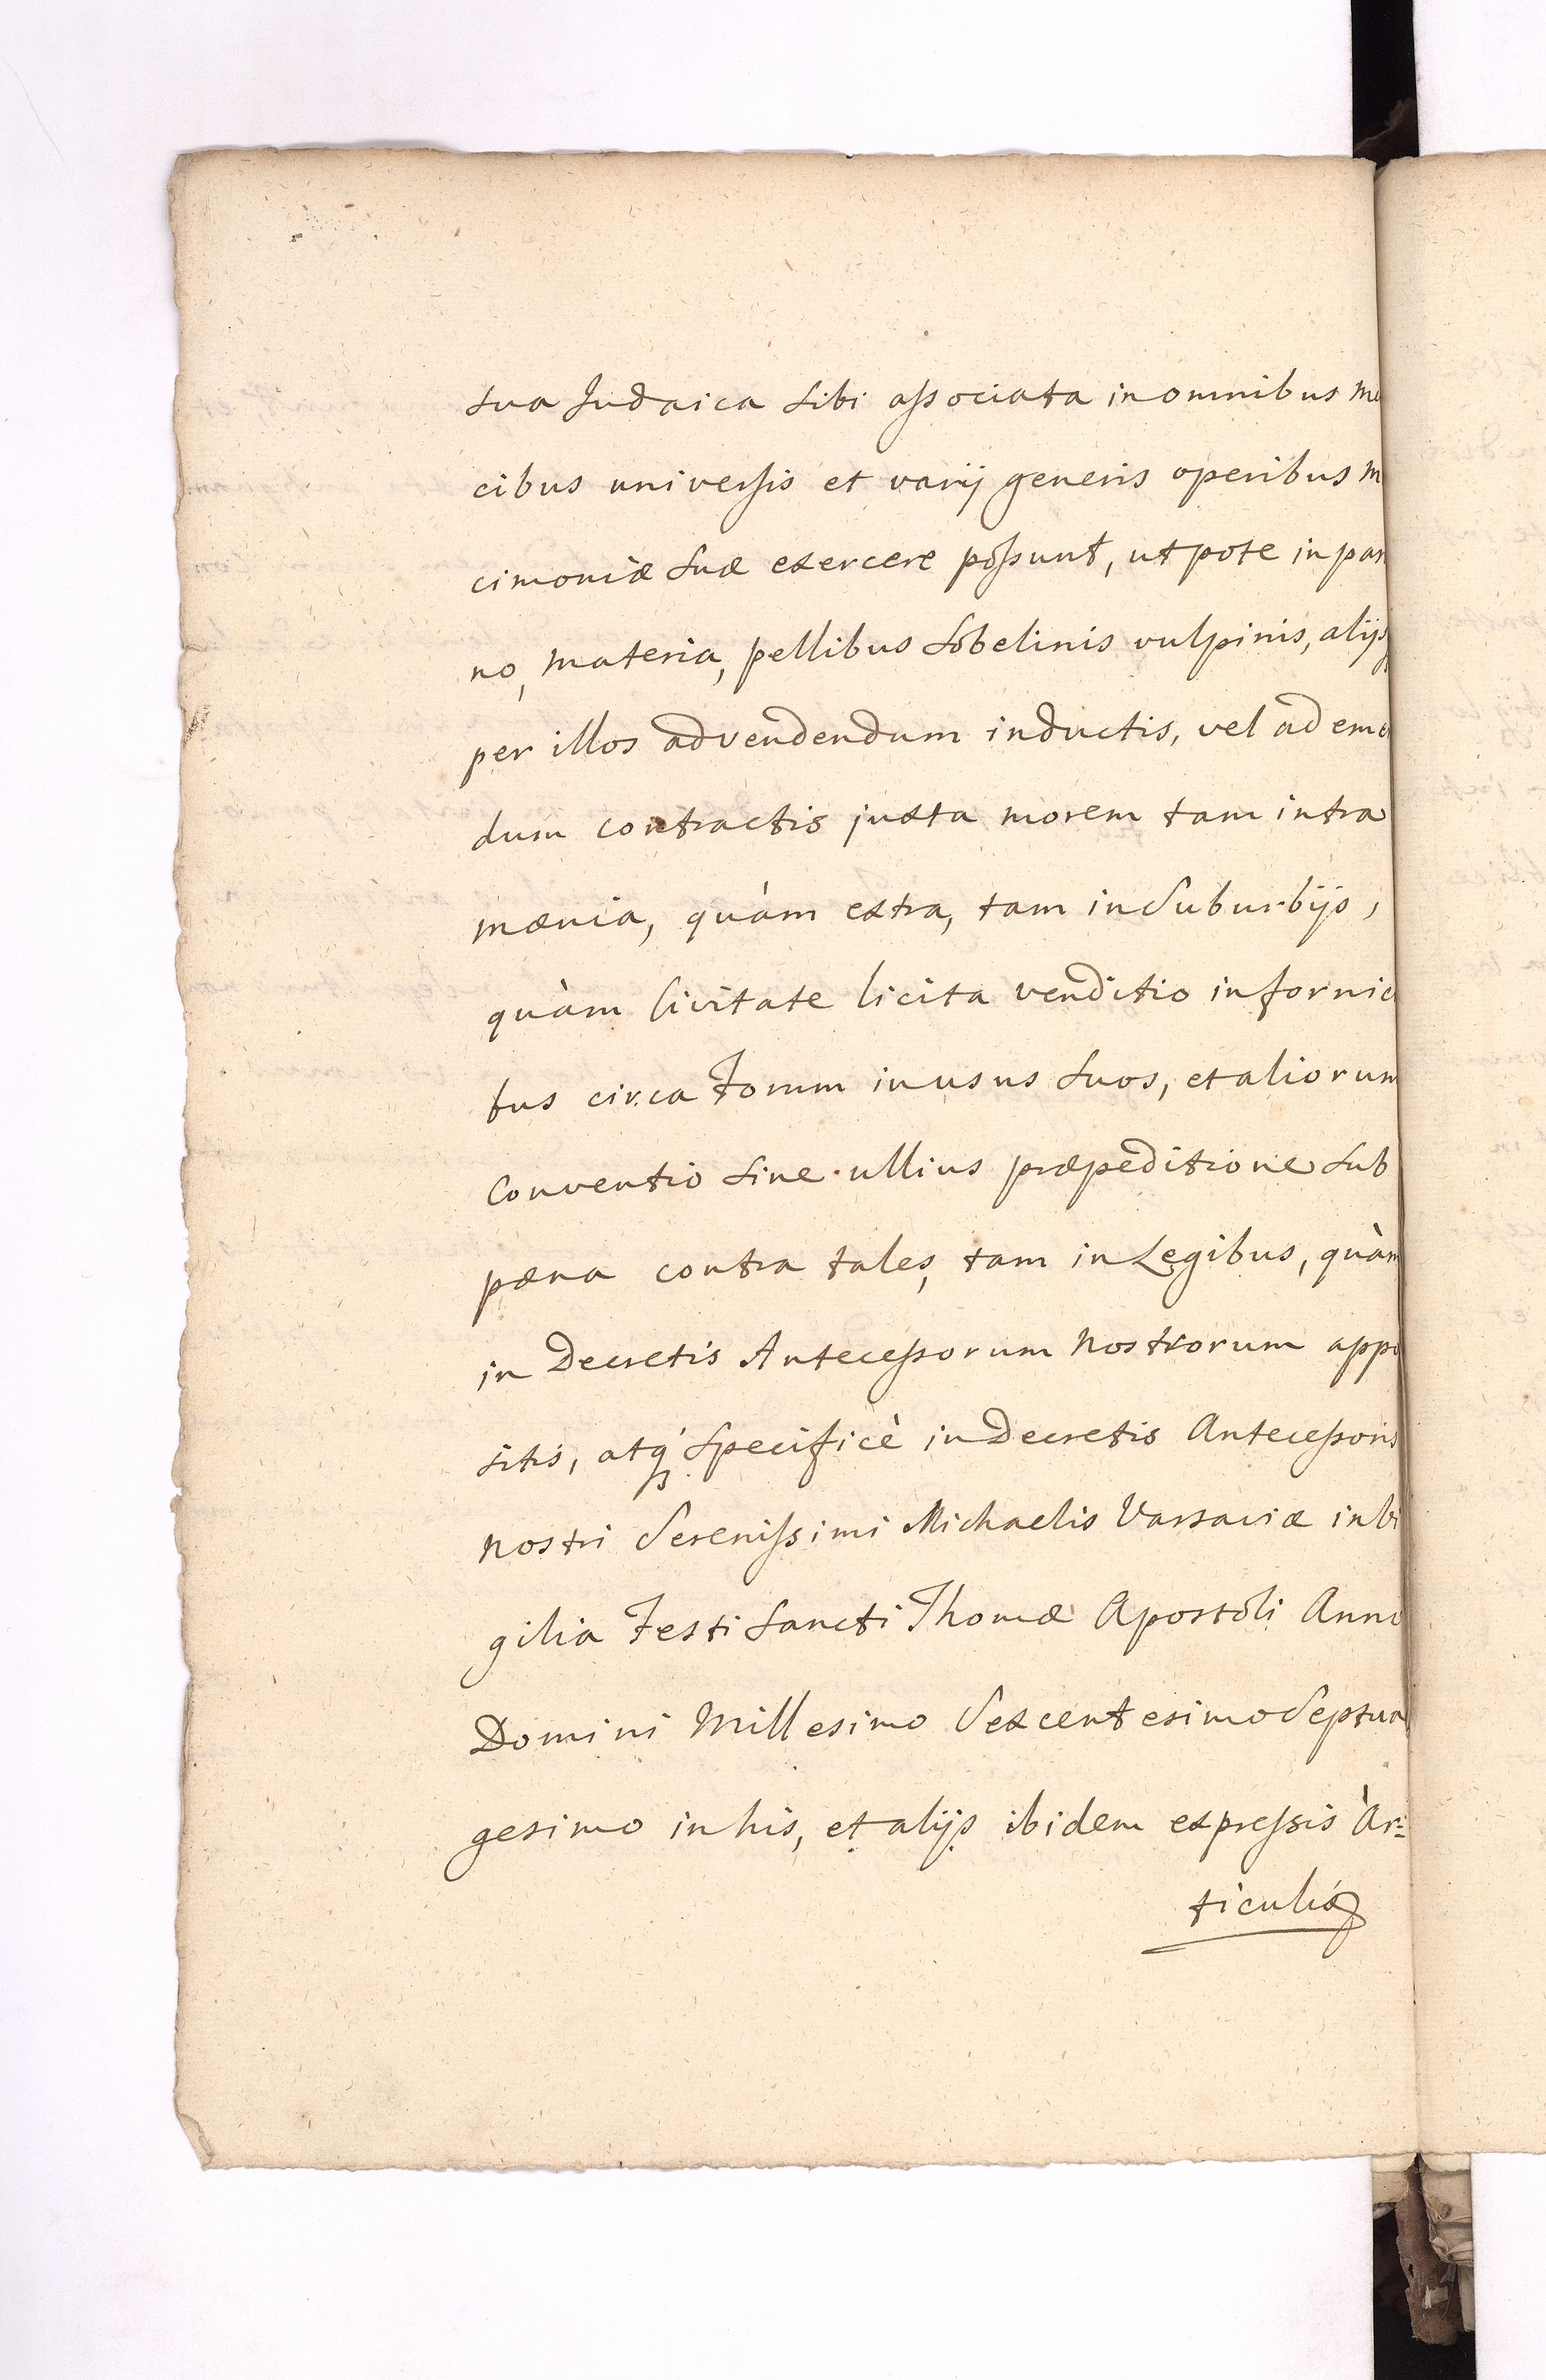 sua Judaica sibi associata in omnibus me
cibus universis et varij generis operibus m
cimoniæ suæ exercere possunt, utpote in pan
no, materia, pellibus sobelinis vulpinis, alijsq
per illos ad vendendum inductis, vel ad emen
dum contractis juxta morem tam intra
mænia, quàm extra, tam in suburbijs,
quàm Civitate licita venditio in fornici
bus circa Forum in usus suos, et aliorum
conventio sine ullius præpeditione sub
pæna contra tales, tam in Legibus, quàm
in Decretis Antecessorum nostrorum appo
sitis, atq specificè in Decretis Antecessoris
nostri Serenissimi Michaelis Varsaviæ in Vi
gilia Festi Sancti Thomæ Apostoli Anno
Domini Millesimo Sexcentesimo Septua
gesimo in his, et alijs ibidem expressis Ar=
ticulis